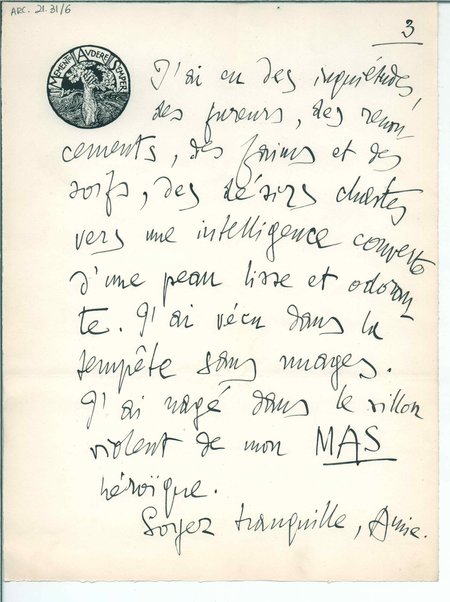 ARC. 21.31/6
3
MEMENTO AUDERE SEMPER
J'ai eu des inquiétudes,
des fureurs, des renon
cements, des faims et des
soifs, des désirs chastes
vers une intelligence couverte
d'une peau lisse et odoran
te. J'ai vécu dans la
tempête sans nuages.
J'ai nagé dans le sillon
violent de mon MAS
héroïque.
Soyez tranquille, Amie.